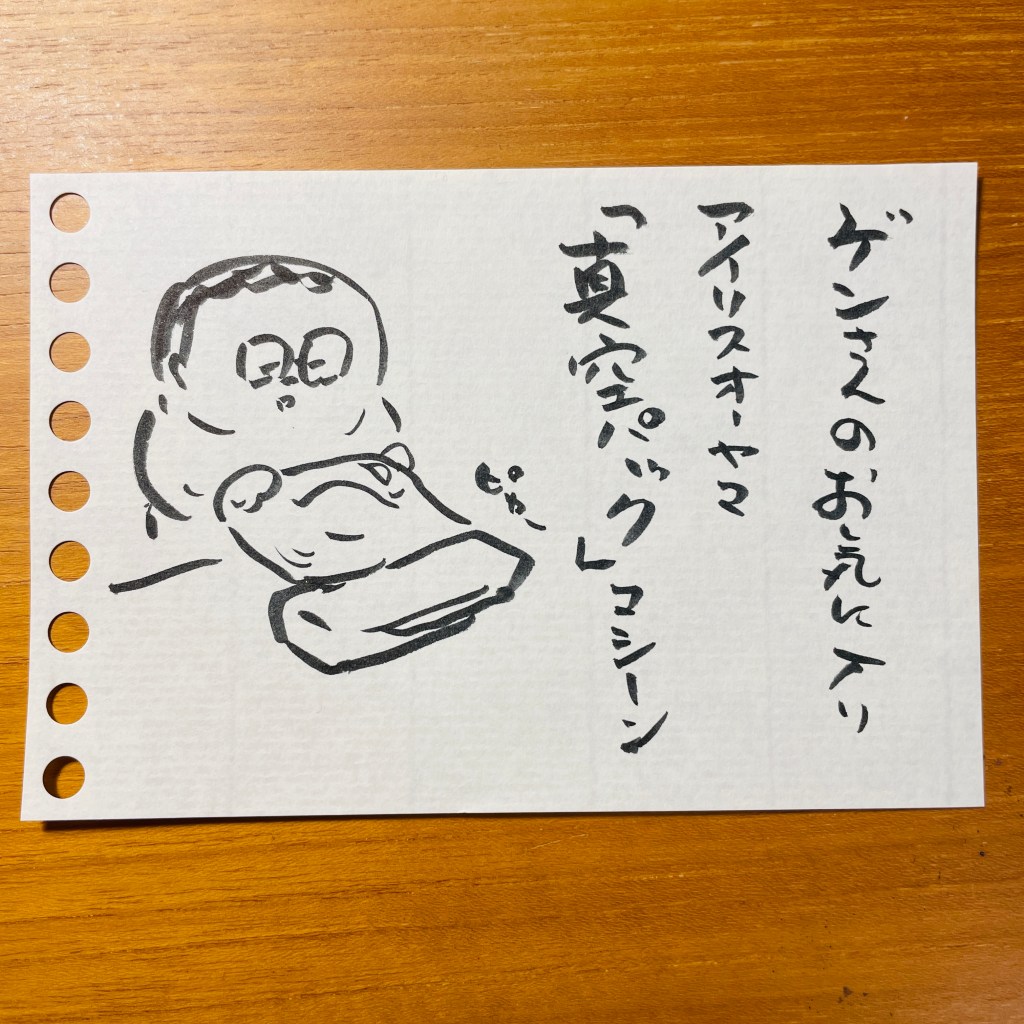 ゲンさんのお気に入り
アイリスオーヤマ
「真空パック」マシーン
ピカー